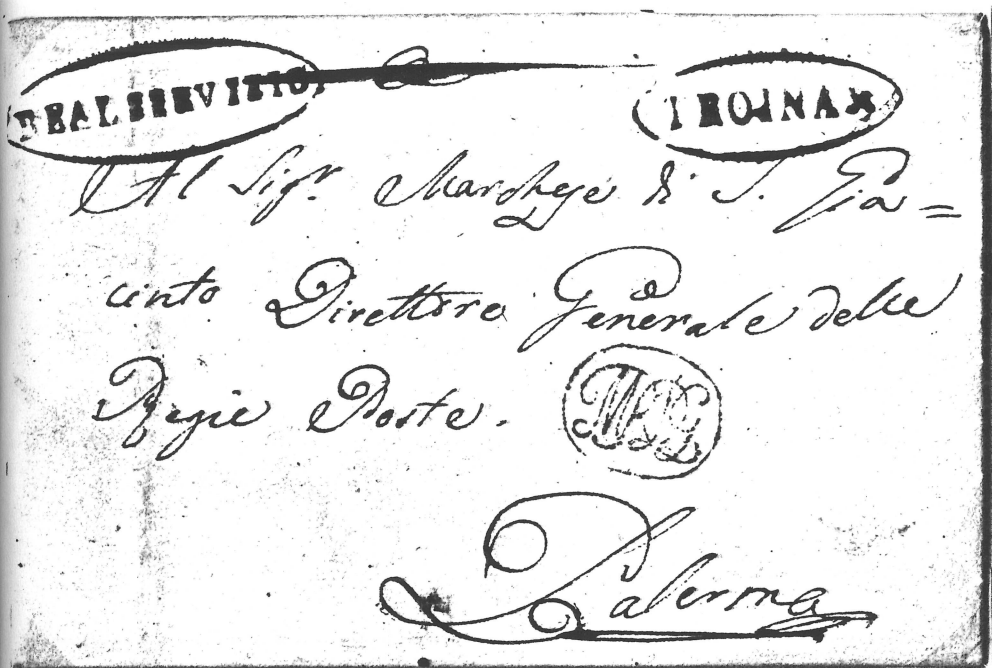 REAL SERVIZIO. TROINA
Al Sigr. Marchese di S. Gia=
cinto Direttore Generale delle
Regie Poste.
Palermo